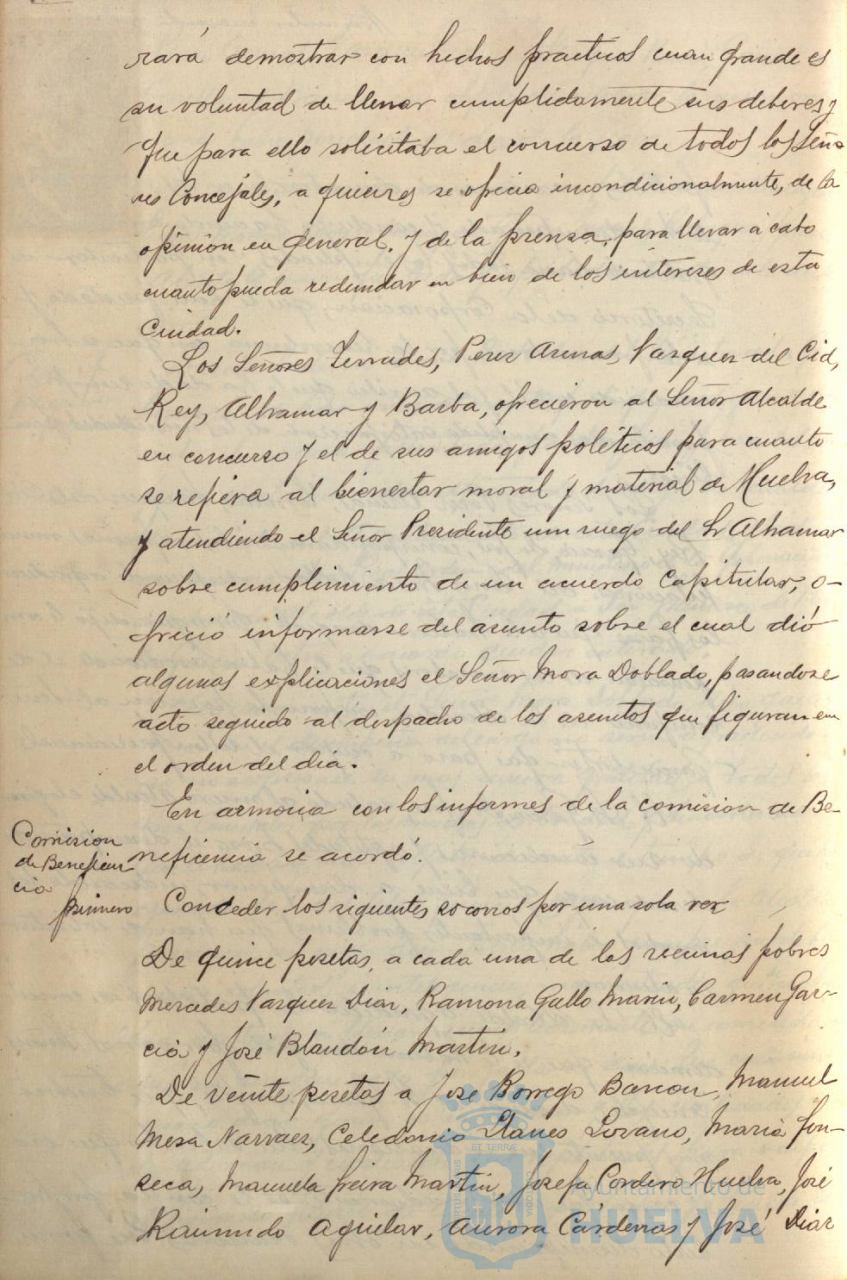 rará demostrar con hechos practicos cuan grande es
su voluntad de llenar cumplidamente sus deberes y
que para ello solicitaba el concurso de todos los Seño
res Concejales, a quienes se ofrecia incondicionalmente, de la
opinion en general, y de la prensa, para llevar á cabo
cuanto pueda redundar en bien de los intereses de esta
Ciudad.
Los Señores Terrades, Perez Arenas, Vazquez del Cid,
Rey, Alhamar y Barba, ofrecieron al Señor Alcalde
en concurso y el de sus amigos politicos para cuanto
se refiera al bienestar moral y material de Huelva,
y atendiendo el Señor Presidente un ruego del Sr Alhamar
sobre cumplimiento de un acuerdo Capitular, o-
freció informarse del asunto sobre el cual dió
algunas explicaciones el Señor Mora Doblado, pasandose
acto seguido al despacho de los asuntos que figuran en
el orden del dia.
En armonia con los informes de la comision de Be-
Comision
de Beneficen
cia
neficencia se acordó.
primero Conceder los siguientes socorros por una sola vez
De quince pesetas, a cada una de las vecinas pobres
Mercedes Vazquez Diaz, Ramona Gallo Marin, Carmen Gar-
cia y José Blandón Martin.
De veinte pesetas a Jose Borrego Bancon, Manuel
Mesa Narvaez, Celedonio Llanes Lozano, Maria Fon-
seca, Manuela Freira Martin, Josefa Cordero Huelva, José
Raimundo Aguilar, Aurora Cárdenas y José Diaz
Ayuntamiento de
HUELVA